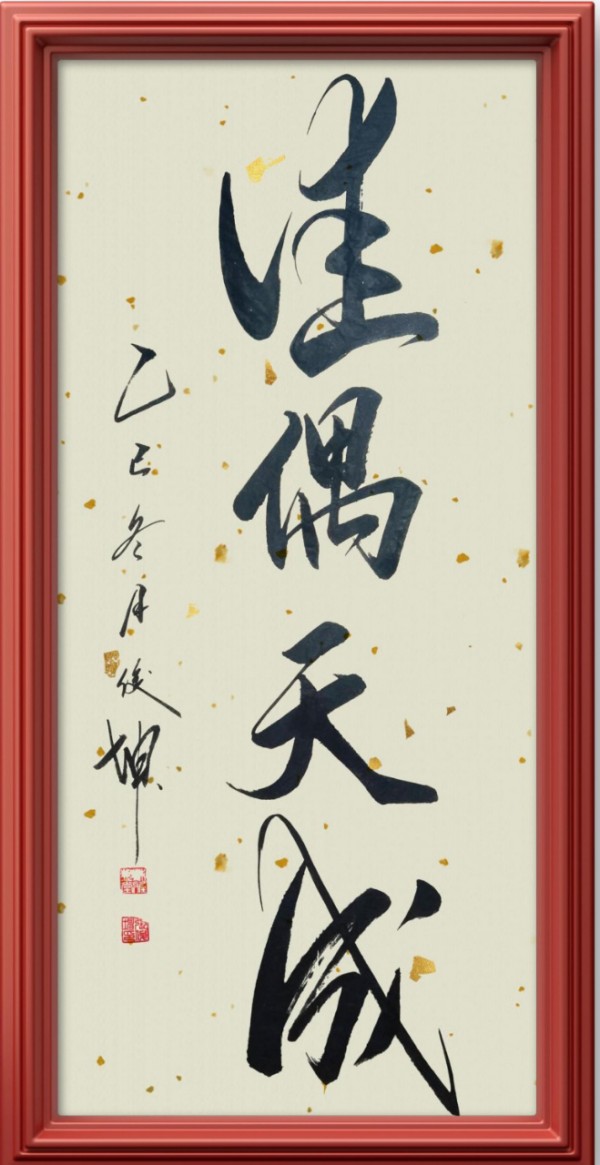 佳偶天成
乙巳冬月俊坤